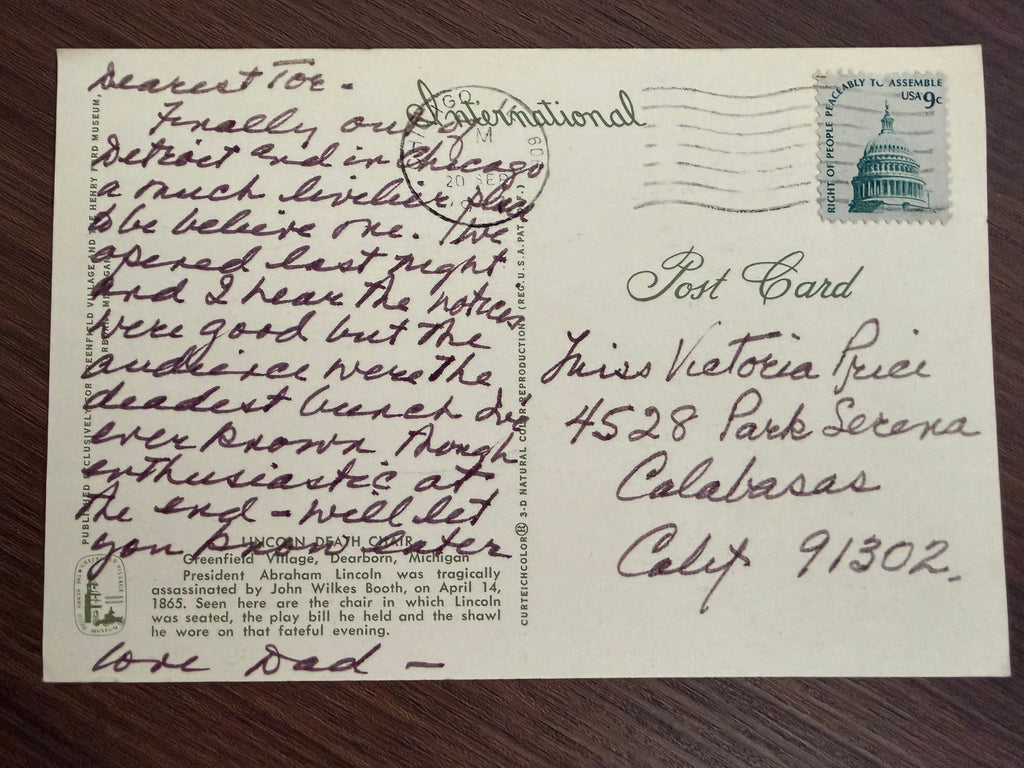 Dearest Toe -
Finally out of
Detroit and in Chicago
a much livelier place
to be believe me. We
opened last night
and I hear the notices
were good but the
audience were the
deadest bunch I've
ever known though
enthusiastic at
the end - will let
you know later
love Dad -
LINCOLN DEATH CHAIR
Greenfield Village, Dearborn, Michigan
President Abraham Lincoln was tragically
assassinated by John Wilkes Booth, on April 14,
1865. Seen here are the chair in which Lincoln
was seated, the play bill he held and the shawl
he wore on that fateful evening.
PUBLISHED EXCLUSIVELY FOR GREENFIELD VILLAGE AND THE HENRY FORD MUSEUM,
DEARBORN, MICHIGAN
CURTEICHCOLOR® 3-D NATURAL COLOR REPRODUCTION (REG. U.S.A. PAT. OFF.)
International
CHICAGO
PM
20 SEP
RIGHT OF PEOPLE PEACEABLY TO ASSEMBLE
USA 9c
Post Card
Miss Victoria Price
4528 Park Serena
Calabasas
Calif 91302.